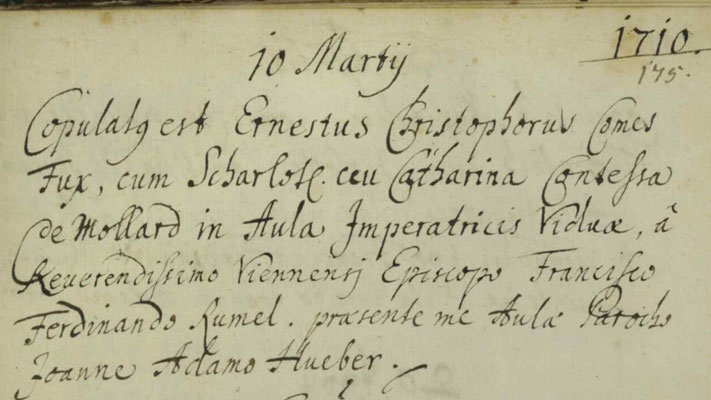 1710.
175.
10 Martij
Copulatq est Ernestus Christophorus Comes
Fux, cum Scharlot. ceu Catharina Contessa
de Mollard in Aula Imperatricis Viduæ, â
Reverendissimo Viennensj Episcopo Francisco
Ferdinando Rumel. præsente me Aulæ Parocho
Joanne Adamo Hueber.